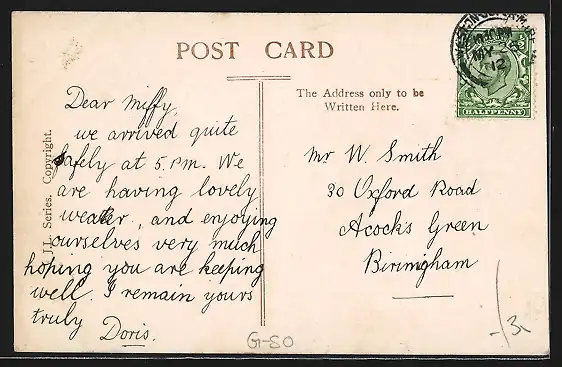 POST CARD
Dear Miffy,
we arrived quite
safely at 5. P.M. We
are having lovely
weather, and enjoying
ourselves very much
hoping you are keeping
well. I remain yours
truly
Doris.
J.L. Series. Copyright.
The Address only to be
Written Here.
Mr W. Smith
30 Oxford Road
Acocks Green
Birmigham
HALFPENNY
MY
12
G-80
3